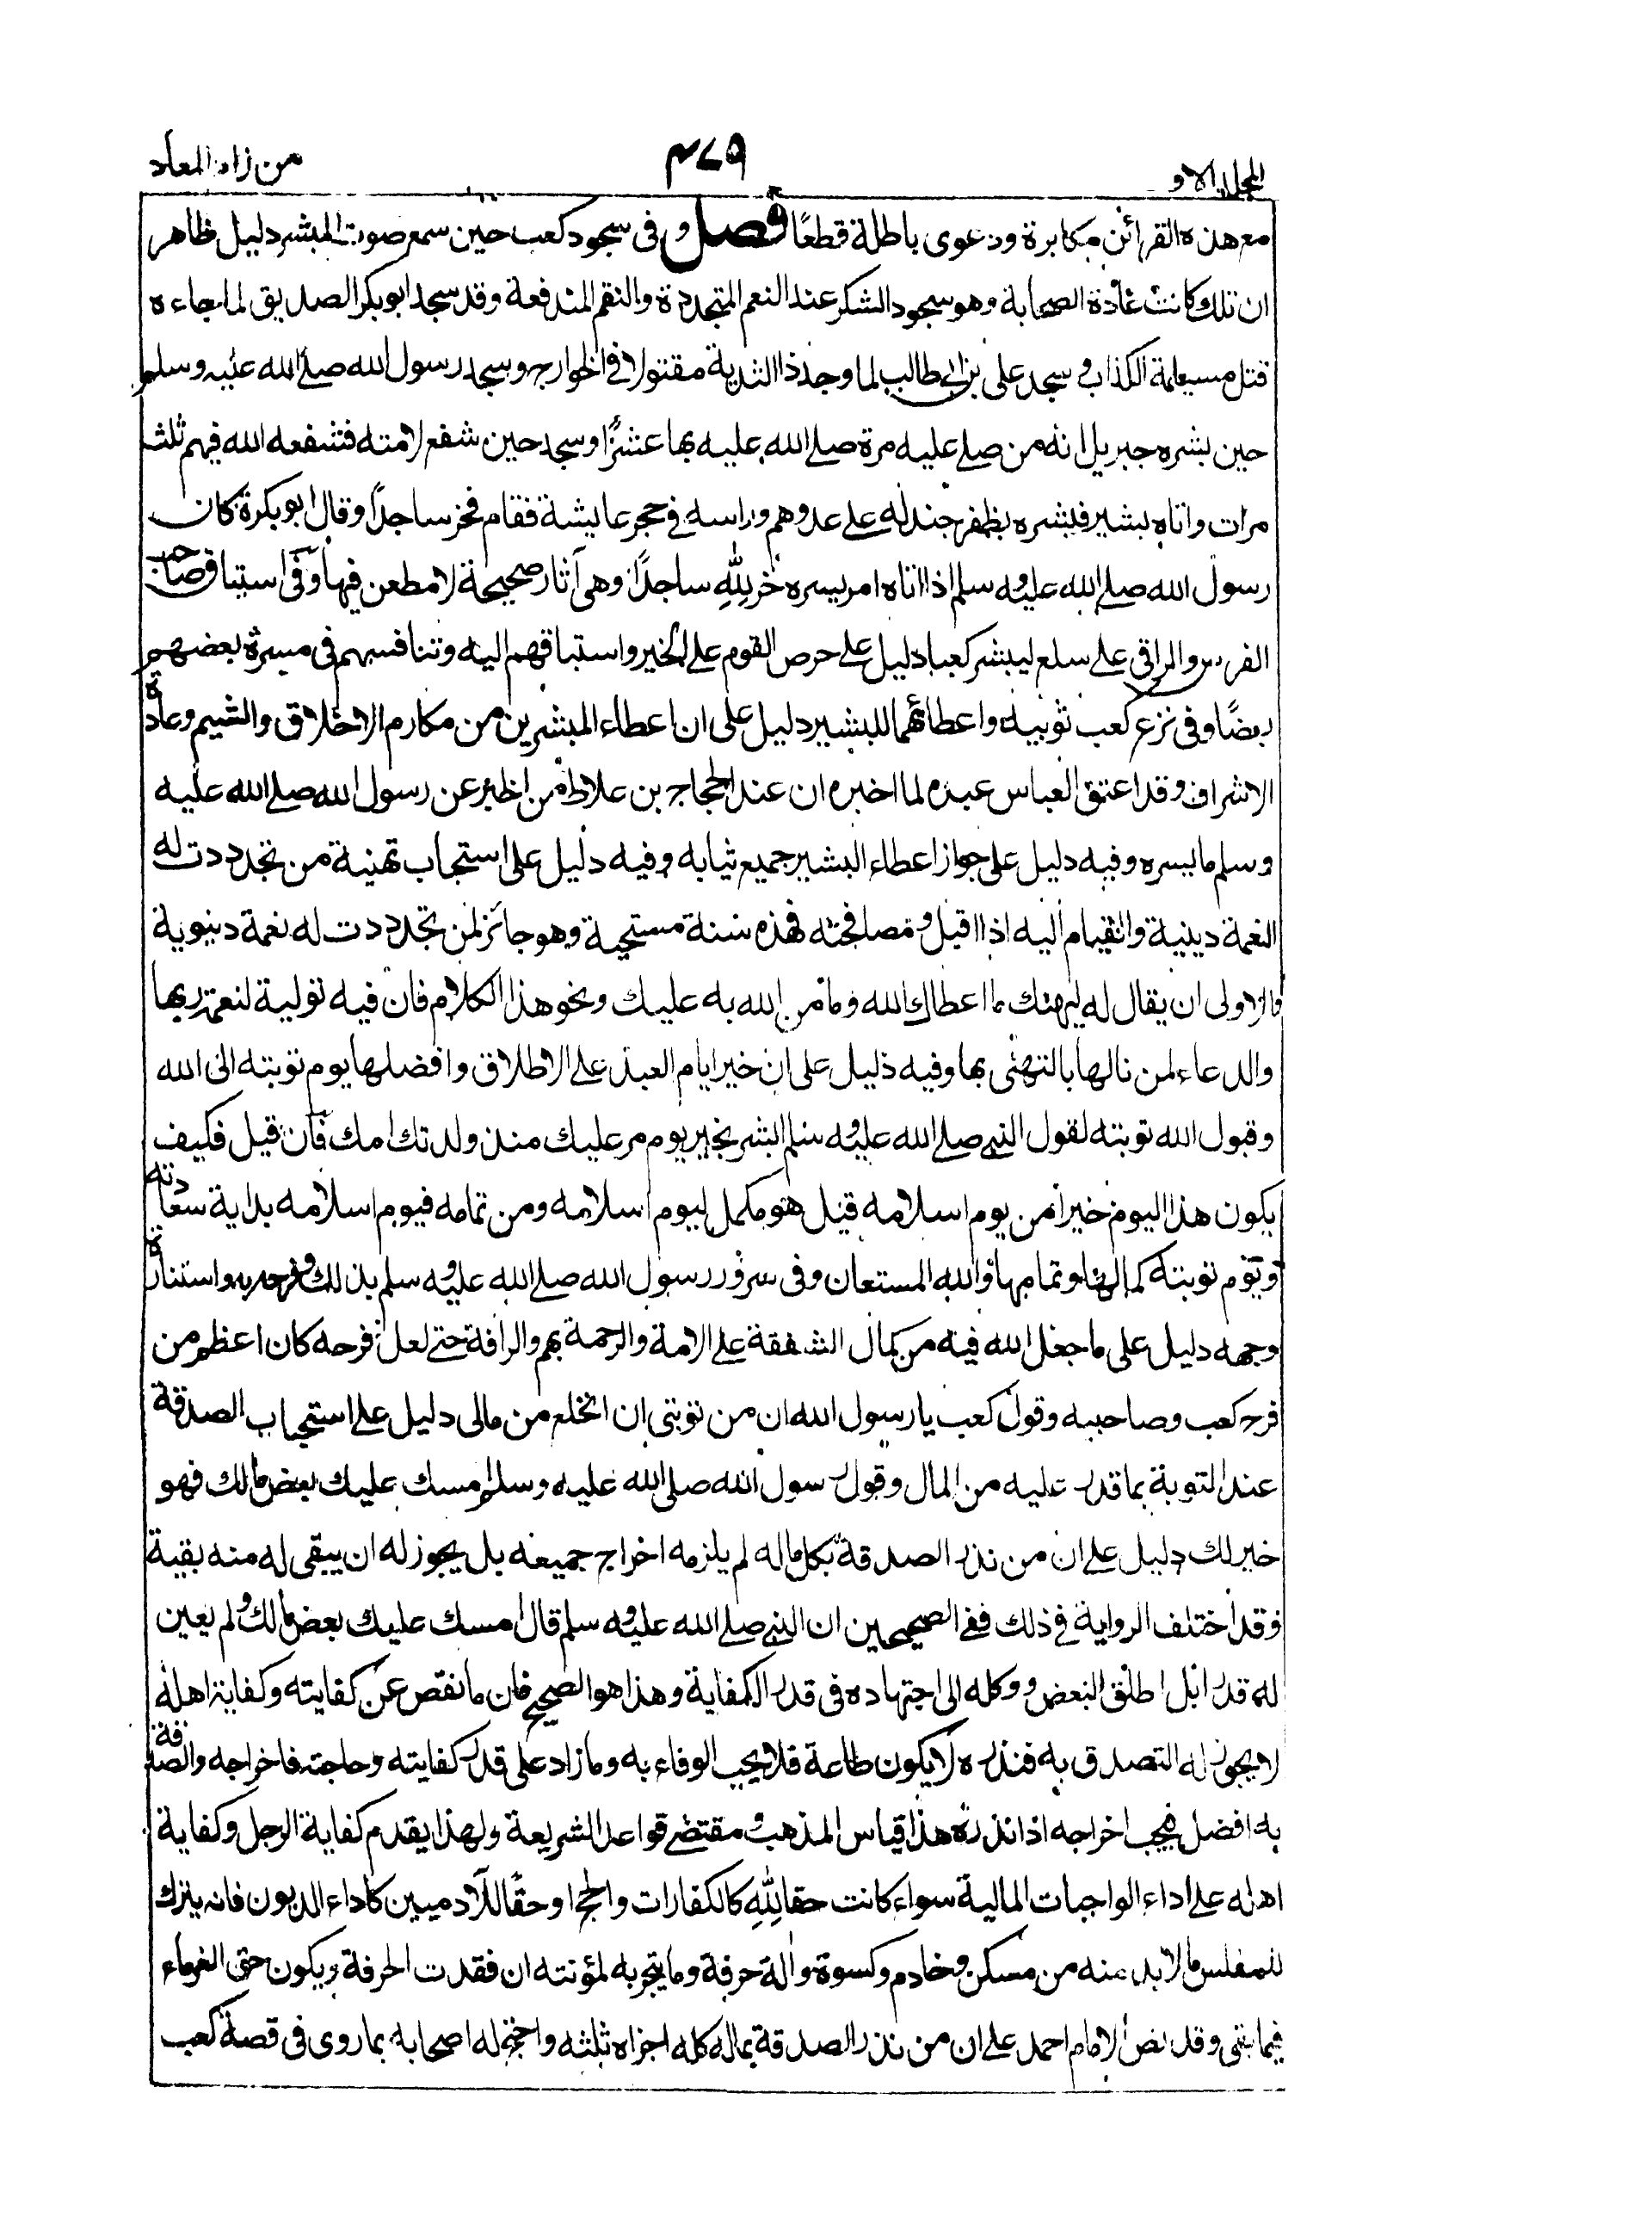 المجلد الاو
۴۷۹
من زاد المعاد
مع هذه القرائن مكابرة ودعوى باطلة قطعًا فصل و فى سجود كعب حين سمع صوت المبشر دليل ظاهر
ان تلك كانت عادة الصحابة وهو سجود الشكر عند النعم المتجددة والنقم المندفعة وقد سجد ابو بكر الصديق لما جاءه
قتل مسيلمة الكذاب و سجد على بن ابى طالب لما وجد ذا الثدية مقتولا فى الخوارج وسجد رسول الله صلے الله عليه وسلم
حين بشره جبريل انه من صلے عليه مرة صلے الله عليه بها عشرًا وسجد حين شفع لامته فشفعه الله فيهم ثلث
مرات واتاه بشير فبشره بظفر جند له علے عدوهم وراسه فى حجر عايشة فقام فخر ساجدًا وقال ابو بكرة كان
رسول الله صلے الله عليه وسلم اذا اتاه امر يسره خر لِلّٰهِ ساجدًا وهى آثار صحيحة لا مطعن فيها وفى استباق صاحب
الفرس والراقى علے سلع ليبشر كعبا دليل علے حرص القوم علے الخير واستباقهم اليه وتنافسهم فى مسرة بعضهم
بعضًا وفى نزع كعب ثوبيه واعطائهما للبشير دليل على ان اعطاء المبشرين من مكارم الاخلاق والشيم وعادة
الاشراف وقد اعتق العباس عبده لما اخبره ان عند الحجاج بن علاط من الخبر عن رسول الله صلے الله عليه
وسلم ما يسره وفيه دليل على جواز اعطاء البشير جميع ثيابه وفيه دليل على استحباب تهنية من تجددت له
النعمة دينية والقيام اليه اذا اقبل ومصافحته فهذه سنة مستحبة وهو جائز لمن تجددت له نعمة دنيوية
والاولى ان يقال له ليهنك ما اعطاك الله وما من الله به عليك ونحو هذا الكلام فان فيه تولية لنعمة ربها
والدعاء لمن نالها بالتهنى بها وفيه دليل على ان خير ايام العبد علے الاطلاق وافضلها يوم توبته الى الله
وقبول الله توبته لقول النبے صلے الله عليه وسلم ابشر بخير يوم مر عليك منذ ولدتك امك فان قيل فكيف
يكون هذا اليوم خيرا من يوم اسلامه قيل هو مكمل ليوم اسلامه ومن تمامه فيوم اسلامه بداية سعادته
ويوم توبته كمالها وتمامها والله المستعان وفى سرور رسول الله صلے الله عليه وسلم بذلك وفرحه به واستنارة
وجهه دليل على ما جعل الله فيه من كمال الشفقة علے الامة والرحمة بهم والرافة حتے لعل فرحه كان اعظم من
فرح كعب وصاحبيه وقول كعب يا رسول الله ان من توبتى ان انخلع من مالى دليل علے استحباب الصدقة
عند التوبة بما قدر عليه من المال وقول رسول الله صلى الله عليه وسلم امسك عليك بعض مالك فهو
خير لك دليل علے ان من نذر الصدقة بكل ماله لم يلزمه اخراج جميعه بل يجوز له ان يبقى له منه بقية
وقد اختلف الرواية فى ذلك ففے الصحيحين ان النبے صلے الله عليه وسلم قال امسك عليك بعض مالك ولم يعين
له قدرا بل اطلق البعض ووكله الى اجتهاده فى قدر الكفاية وهذا هو الصحيح فان ما نقص عن كفايته وكفاية اهله
لا يجوز له التصدق به فنذره لا يكون طاعة فلا يجب الوفاء به وما زاد على قدر كفايته وحاجته فاخراجه والصدقة
به افضل فيجب اخراجه اذا نذره هذا قياس المذهب ومقتضے قواعد الشريعة ولهذا يقدم كفاية الرجل وكفاية
اهله علے اداء الواجبات المالية سواء كانت حقا لِلّٰهِ كالكفارات والحج او حقًا للآدميين كاداء الديون فانه يترك
للمفلس ما لا بد منه من مسكن وخادم وكسوة وآلة حرفة وما يتجر به لمؤنته ان فقدت الحرفة ويكون حق الغرماء
فيما بقى وقد نص الامام احمد علے ان من نذر الصدقة بماله كله اجزاه ثلثه واحتج له اصحابه بما روى فى قصة كعب